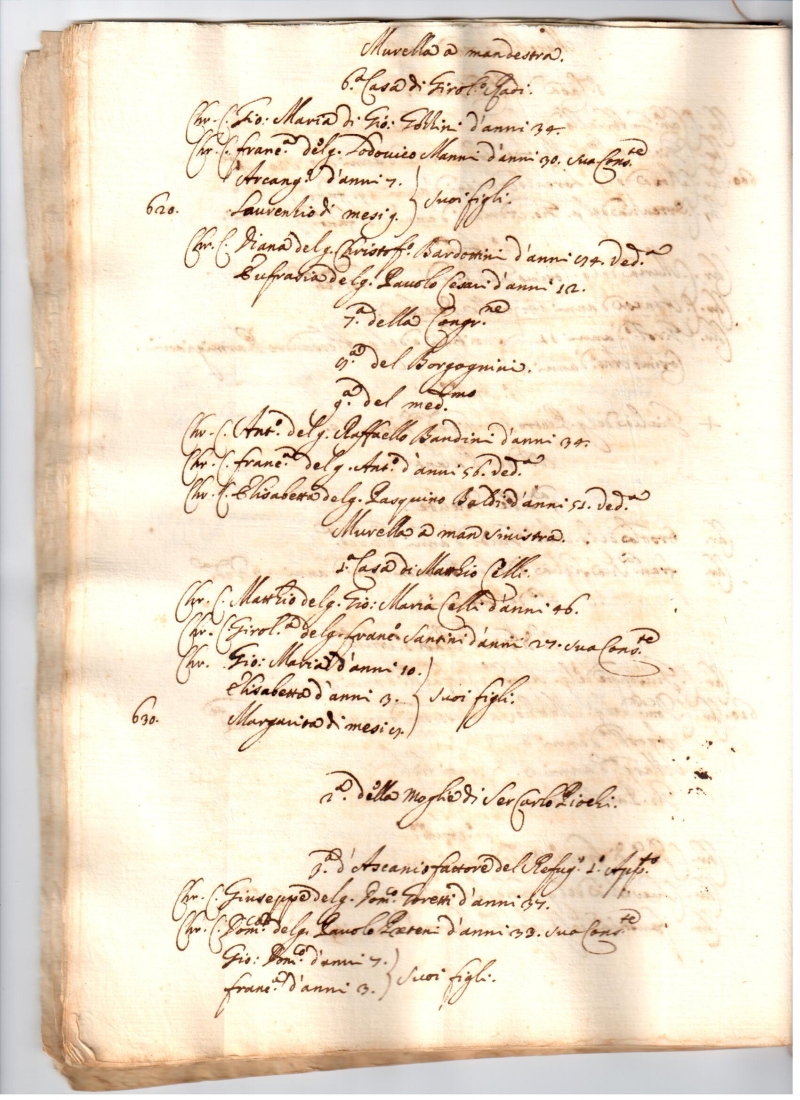 Murella a man destra.
6.a Casa di Girol.o
Chr. C. Gio: Maria di Gio: d'anni 34.
Chr. C. Franc.a del q. Lodovico Manni d'anni 30. sua Cons.te
Arcang.o d'anni 7.
620. Laurenzio di mesi 9. } suoi figli.
Chr. C. Diana del q. Christof.o Bardottini d'anni 54. Ved.a
Eufrasia del q. Pavolo Cesari d'anni 12.
7.a della Congr.ne
8.a del Borgognini.
9.a del med.imo
Chr. C. Ant.o del q. Raffaello Bandini d'anni 34.
Chr. C. Franc.a del q. Ant.o d'anni 56. Ved.a
Chr. C. Elisabetta del q. Pasquino Baldi d'anni 51. Ved.a
Murella a man sinistra.
1.a Casa di Matthio Celli.
Chr. C. Matthio del q. Gio: Maria Celli d'anni 46.
Chr. C. Girol.a del q. Franc.o Santini d'anni 27. sua Cons.te
Chr. Gio: Maria d'anni 10.
Elisabetta d'anni 3. } suoi figli.
630. Margarita di mesi
2.a della Moglie di Ser Carlo
3.a d'Ascanio fattore del Refug.o 1.o App.to
Chr. C. Giuseppe del q. Dom.co d'anni 37.
Chr. C. Dom.ca del q. Pavolo d'anni 33. sua Cons.te
Gio: Dom.co d'anni 7.
Franc.o d'anni 3. } suoi figli.